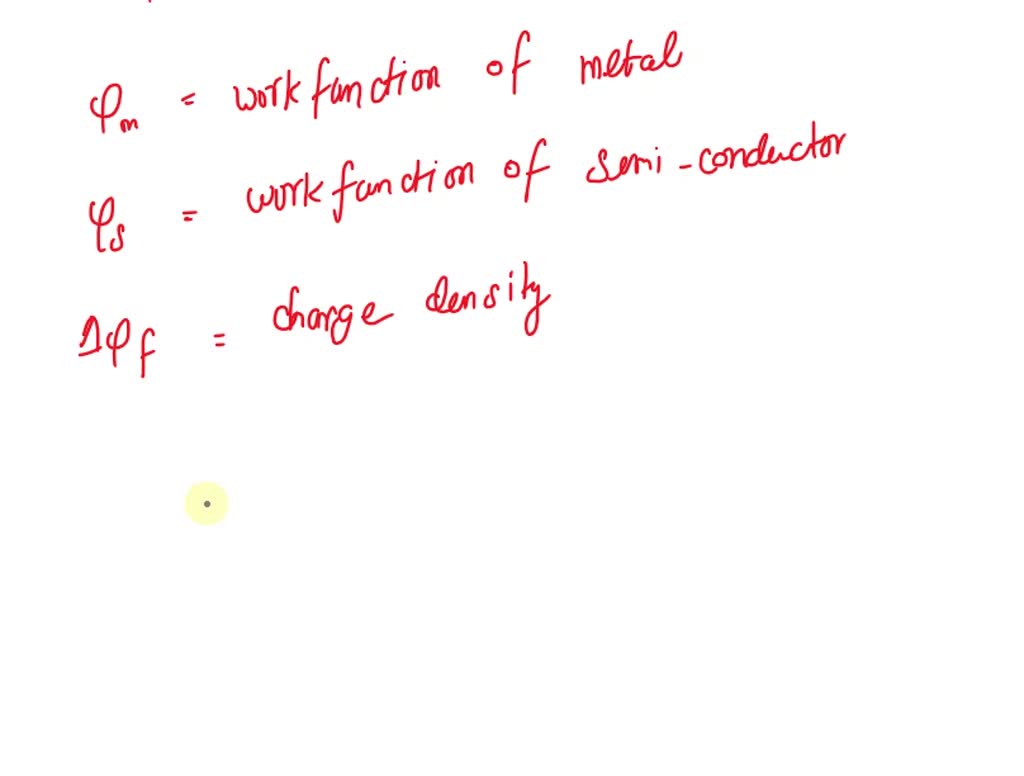 φm = workfunction of metal
φs = workfunction of semi-conductor
Δφf = charge density